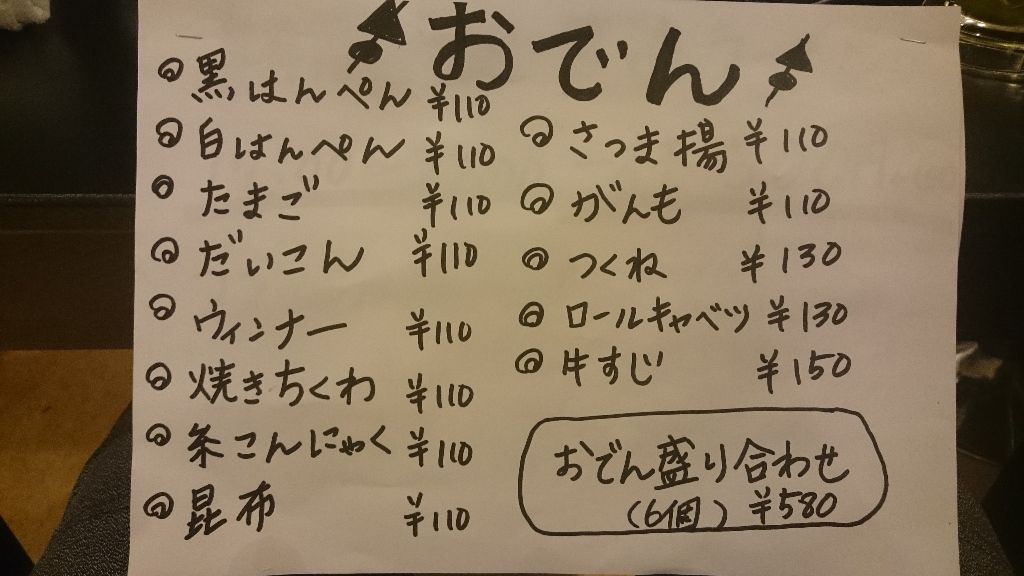 おでん
黒はんぺん ¥110
白はんぺん ¥110
たまご ¥110
だいこん ¥110
ウィンナー ¥110
焼きちくわ ¥110
糸こんにゃく ¥110
昆布 ¥110
さつま揚 ¥110
がんも ¥110
つくね ¥130
ロールキャベツ ¥130
牛すじ ¥150
おでん盛り合わせ
(6個) ¥580